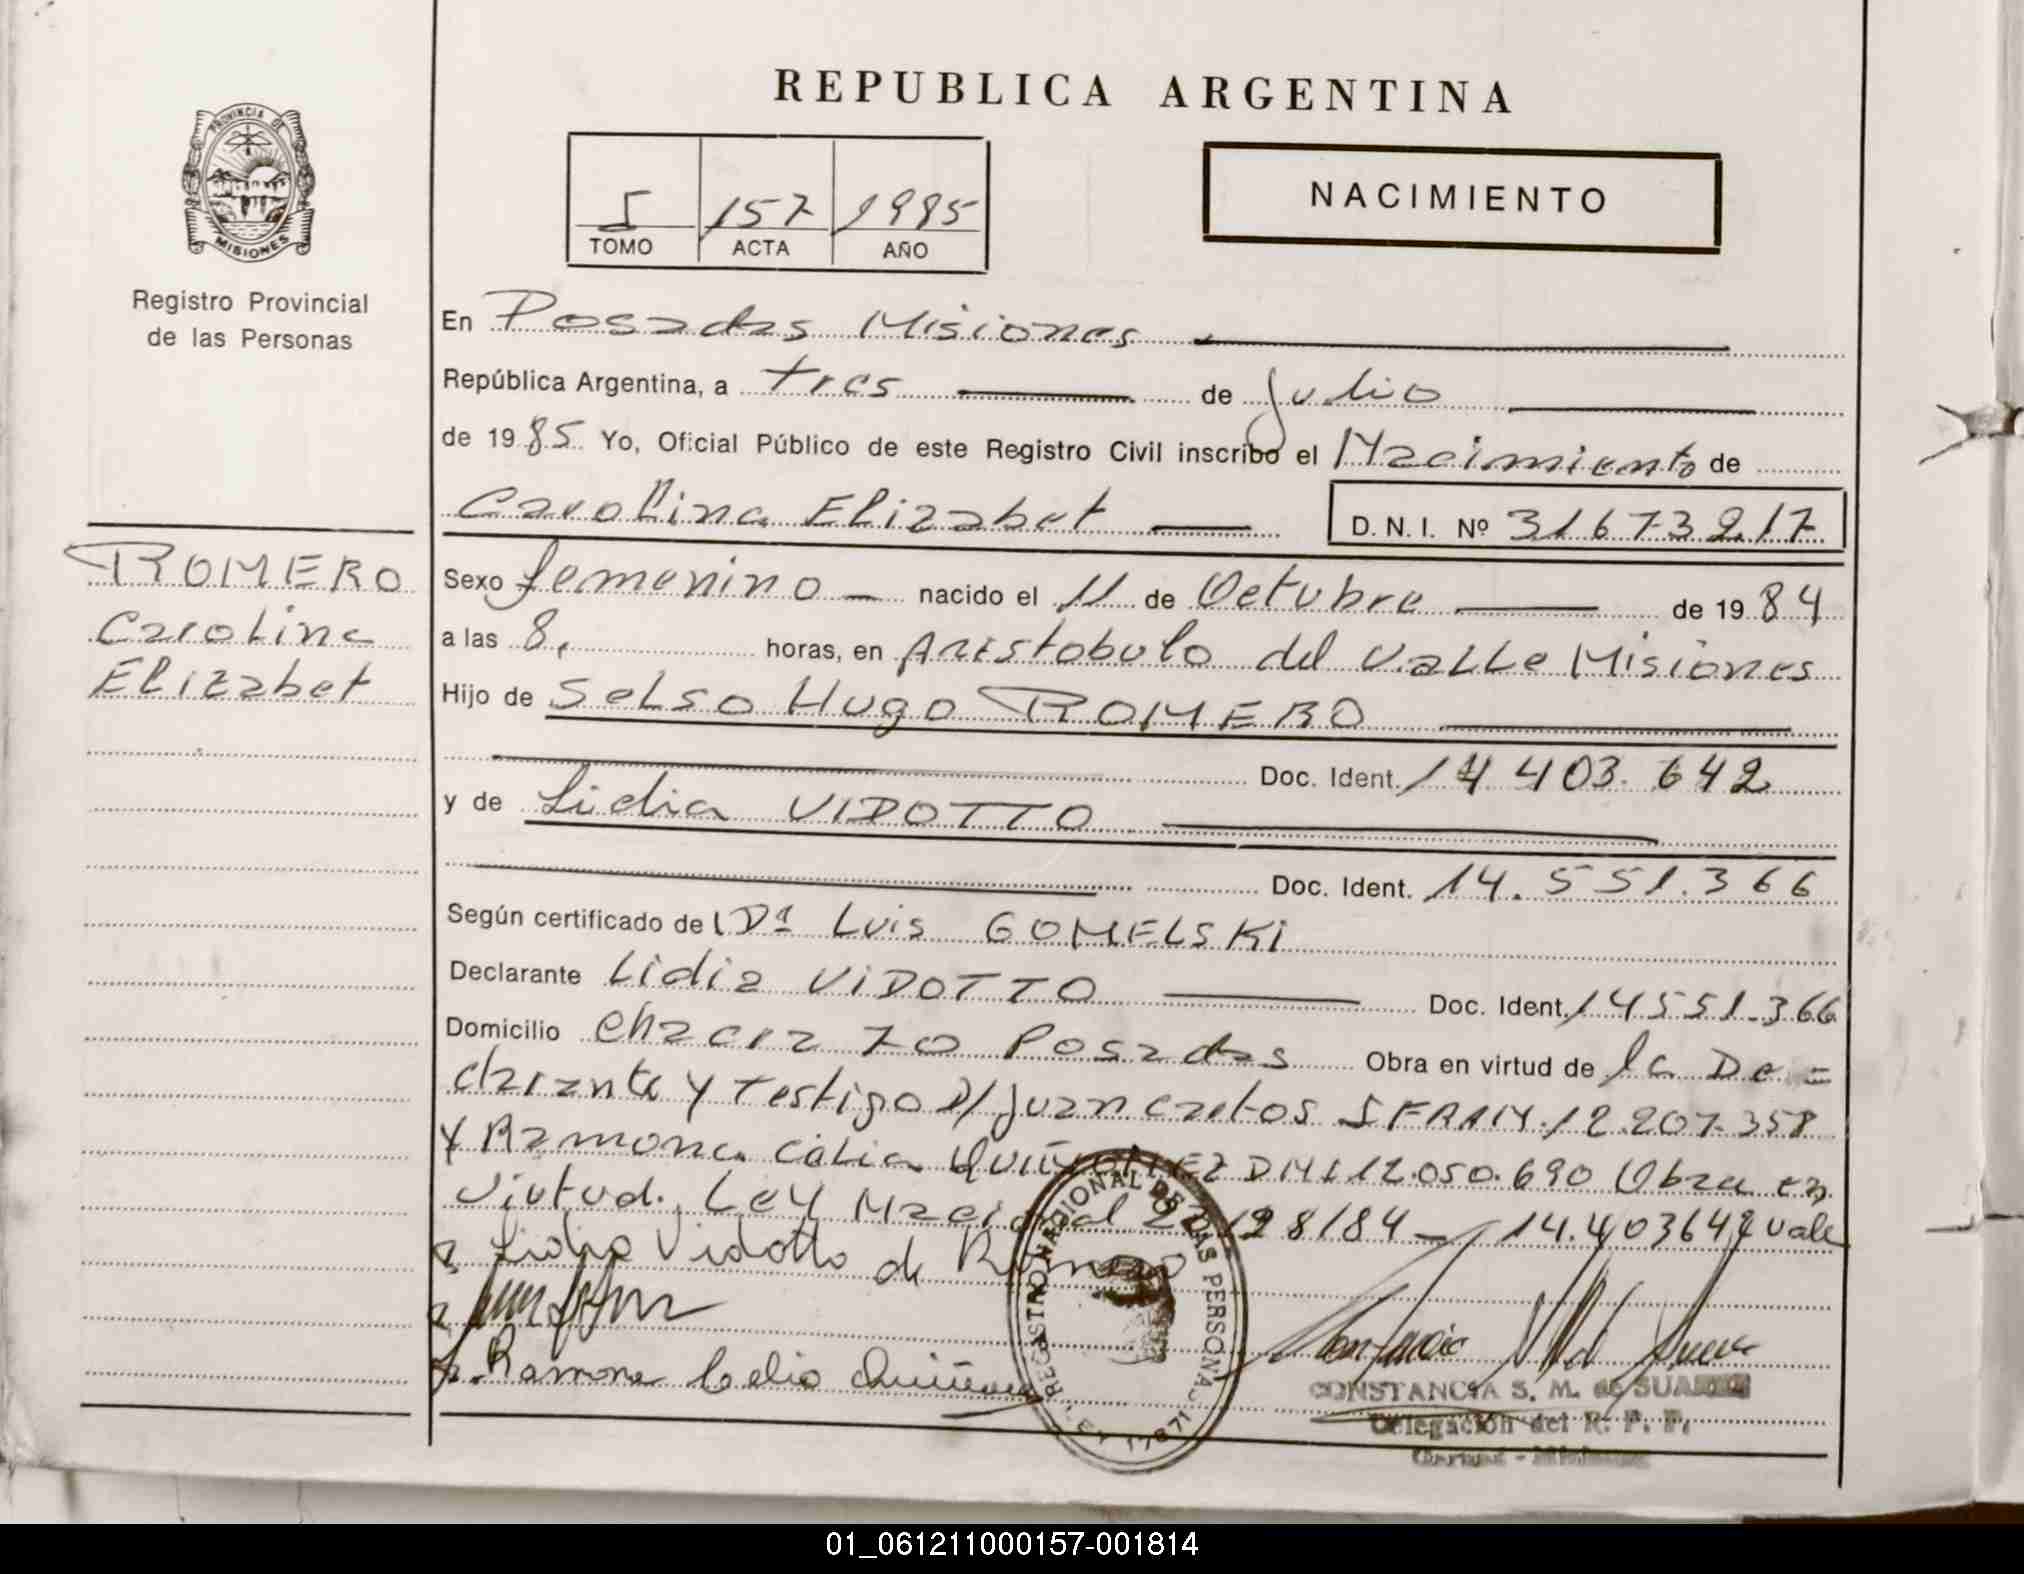 REPUBLICA ARGENTINA
PROVINCIA DE MISIONES
Registro Provincial
de las Personas
I 157 1985
TOMO ACTA AÑO
NACIMIENTO
En Posadas Misiones
República Argentina, a tres de julio
de 1985 Yo, Oficial Público de este Registro Civil inscribo el Nacimiento de
Carolina Elizabet D.N.I. Nº 31673217
ROMERO
Carolina
Elizabet
Sexo femenino nacido el 11 de Octubre de 1984
a las 8, horas, en Aristobulo del Valle Misiones
Hijo de Selso Hugo ROMERO
Doc. Ident. 14 403.642
y de Lidia VIDOTTO
Doc. Ident. 14.551.366
Según certificado de Luis GOMELSKI
Declarante Lidia VIDOTTO Doc. Ident. 14551.366
Domicilio Chacra 70 Posadas Obra en virtud de la De=
clarante y Testigo Juan Carlos 12.207.358
y Ramona Celia QUIÑONEZ DNI 12.050.690 Obra en
Virtud. Ley Nacional 128/84 - 14.403642 vale
Lidia Vidotto de Romero
Ramona Celia
REGISTRO NACIONAL DE LAS PERSONAS
LEY 17671
CONSTANCIA S. M. de SUAREZ
Delegación del R. P. P.